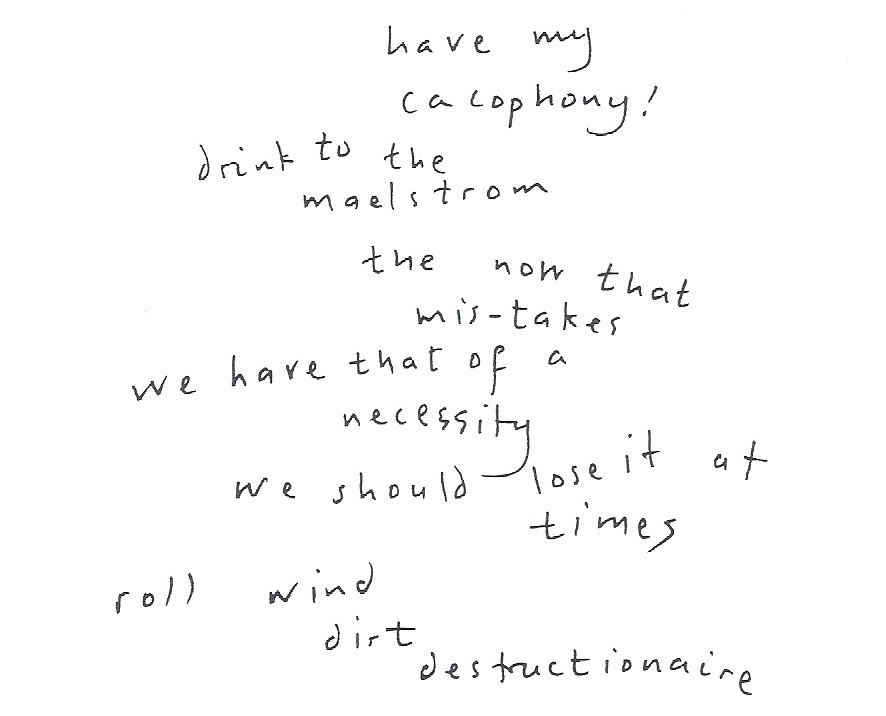 have my
cacophony!
drink to the
maelstrom
the now that
mis-takes
we have that of a
necessity
we should lose it at
times
roll wind
dirt
destructionaire